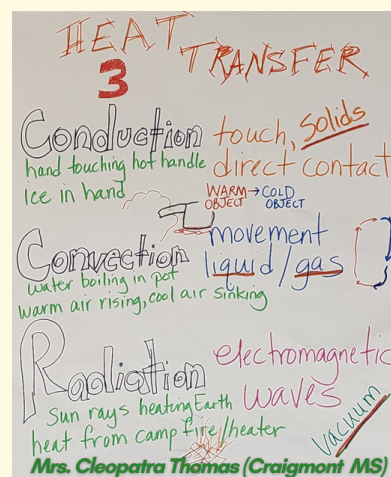 HEAT
TRANSFER
3
Conduction touch, Solids
hand touching hot handle direct contact
Ice in hand
WARM → COLD
OBJECT OBJECT
Convection movement
liquid/gas
water boiling in pot
warm air rising, cool air sinking
Radiation electromagnetic
waves
Sun rays heating Earth
heat from camp fire/heater
Vacuum
Mrs. Cleopatra Thomas (Craigmont MS)